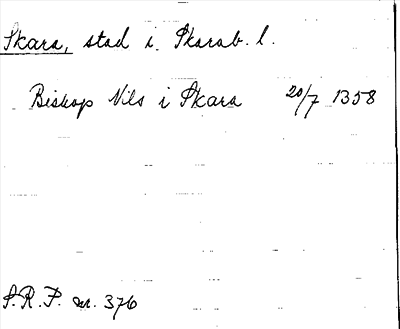 Skara, stad i. Skarab. l.
Biskop Nils i Skara 20/7 1358
S.R.P. nr. 376